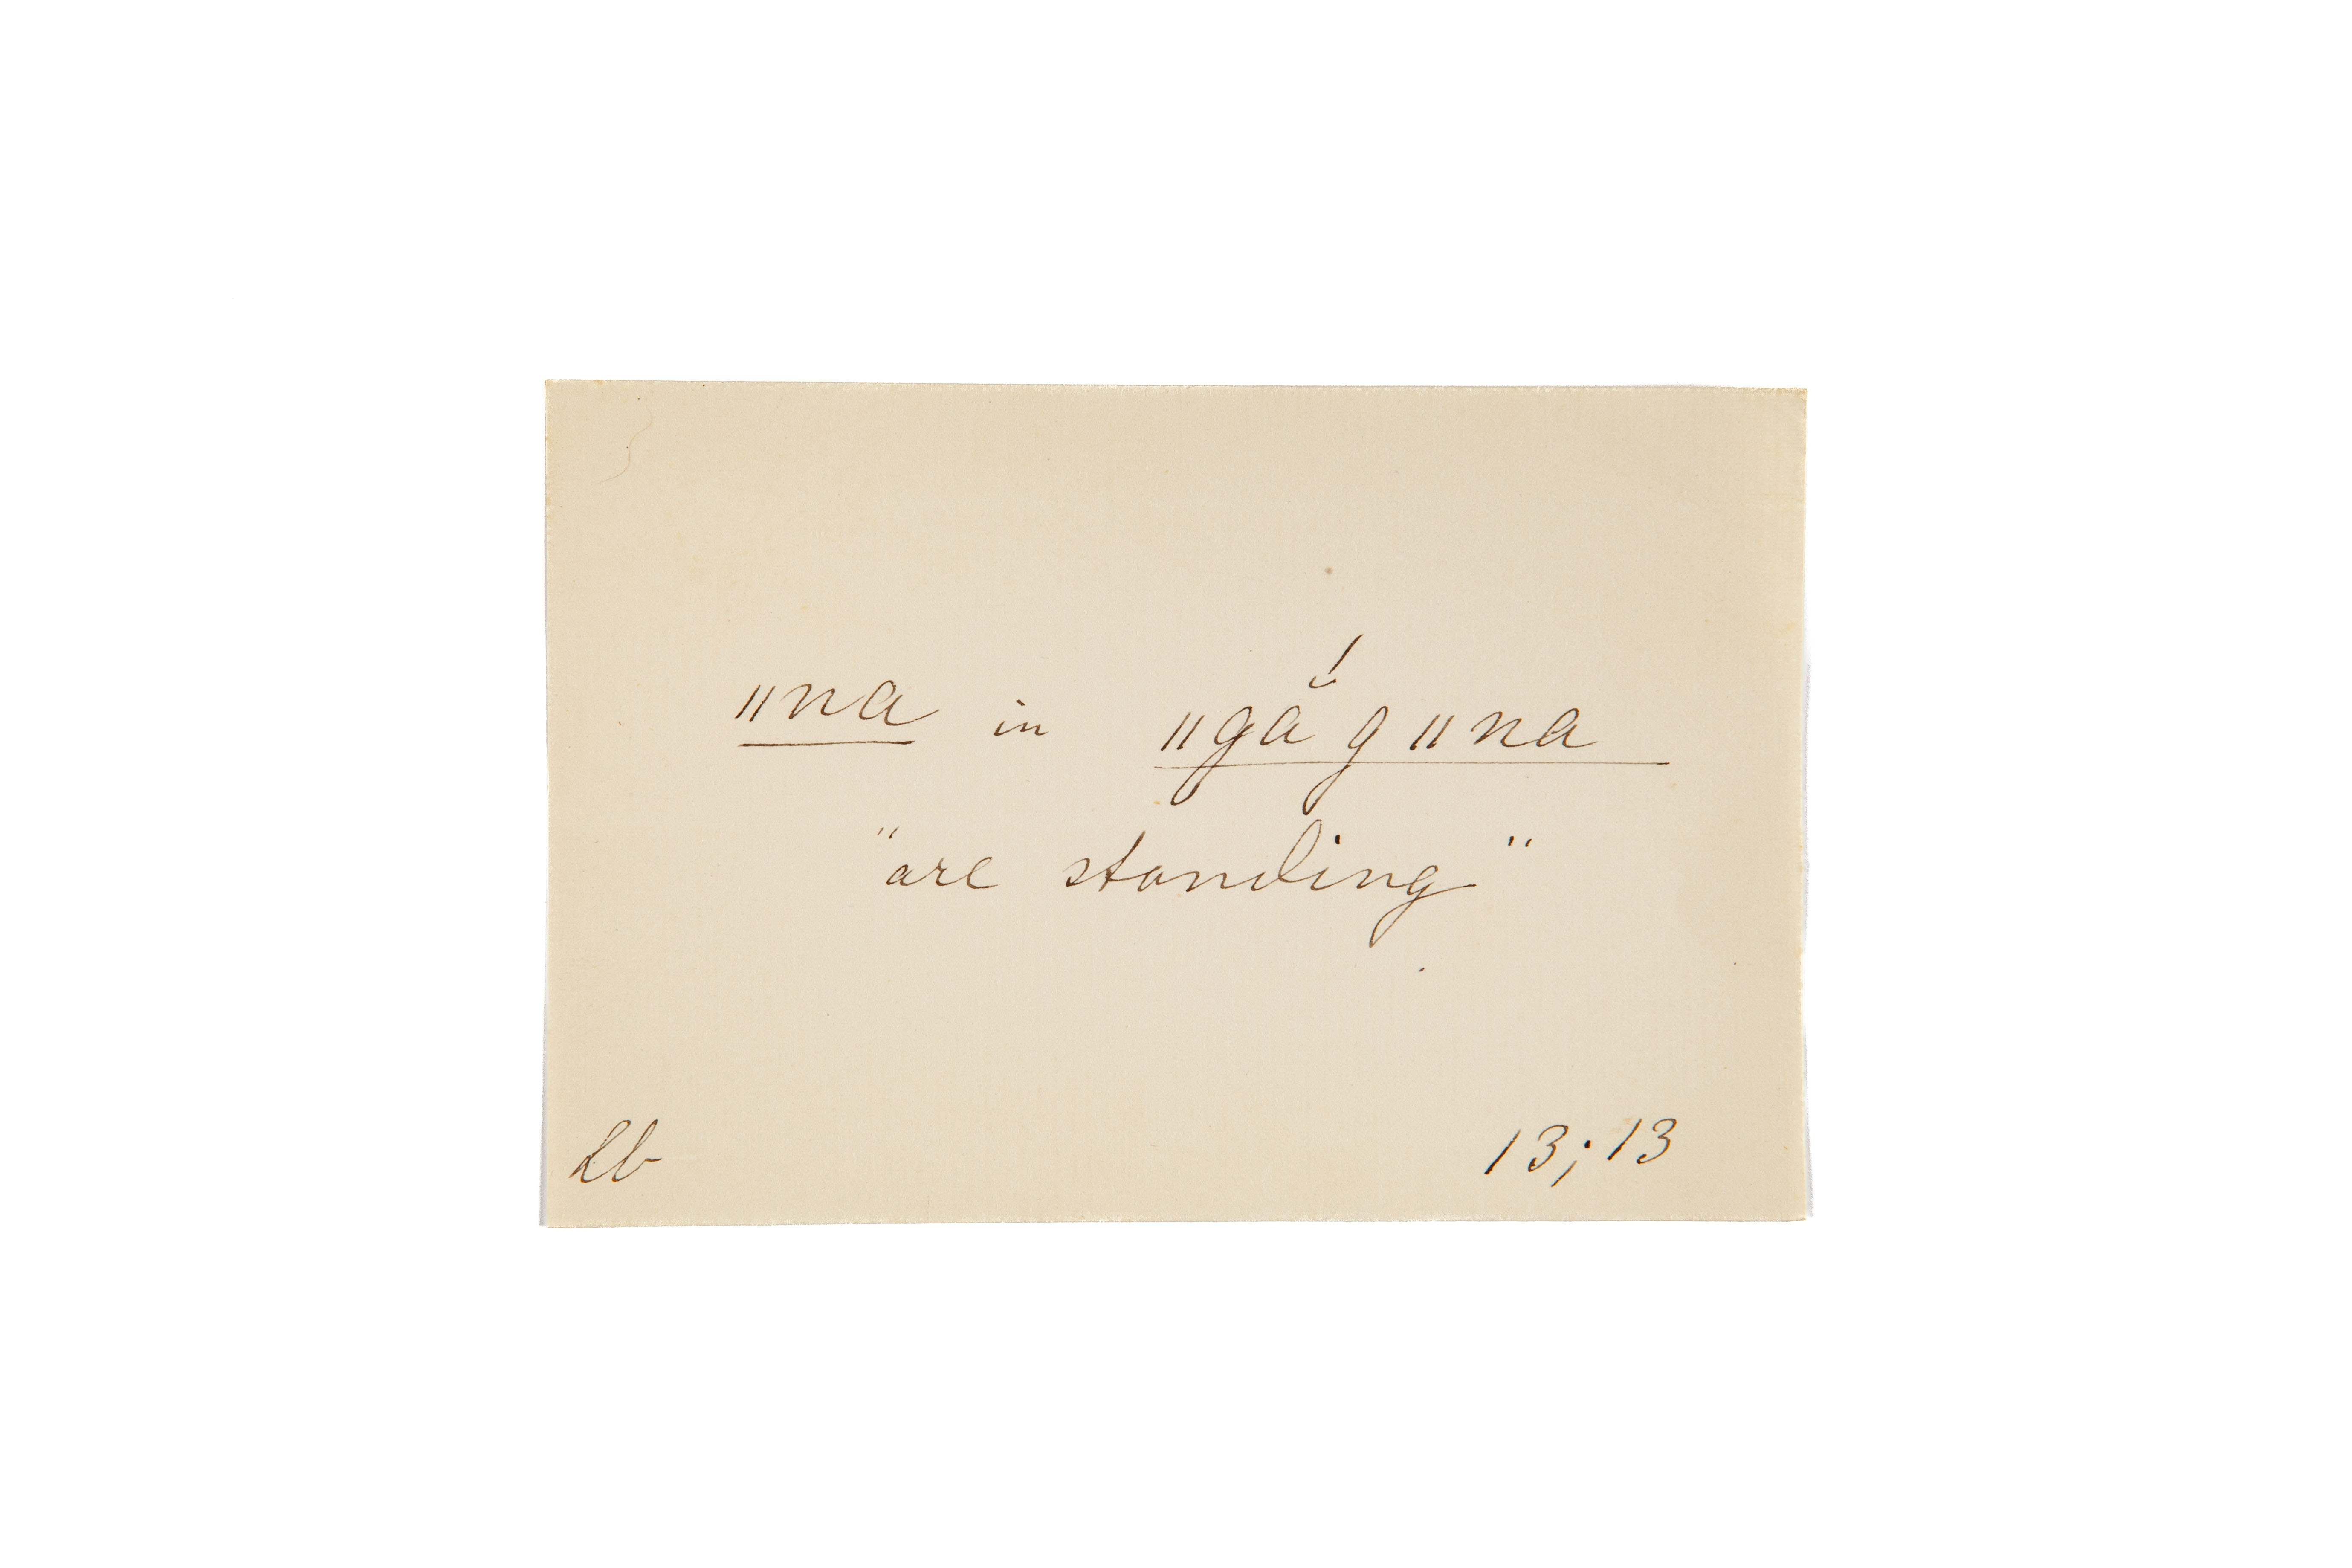 ǁna in ǁgắgǁna
"are standing"
Lb 13; 13